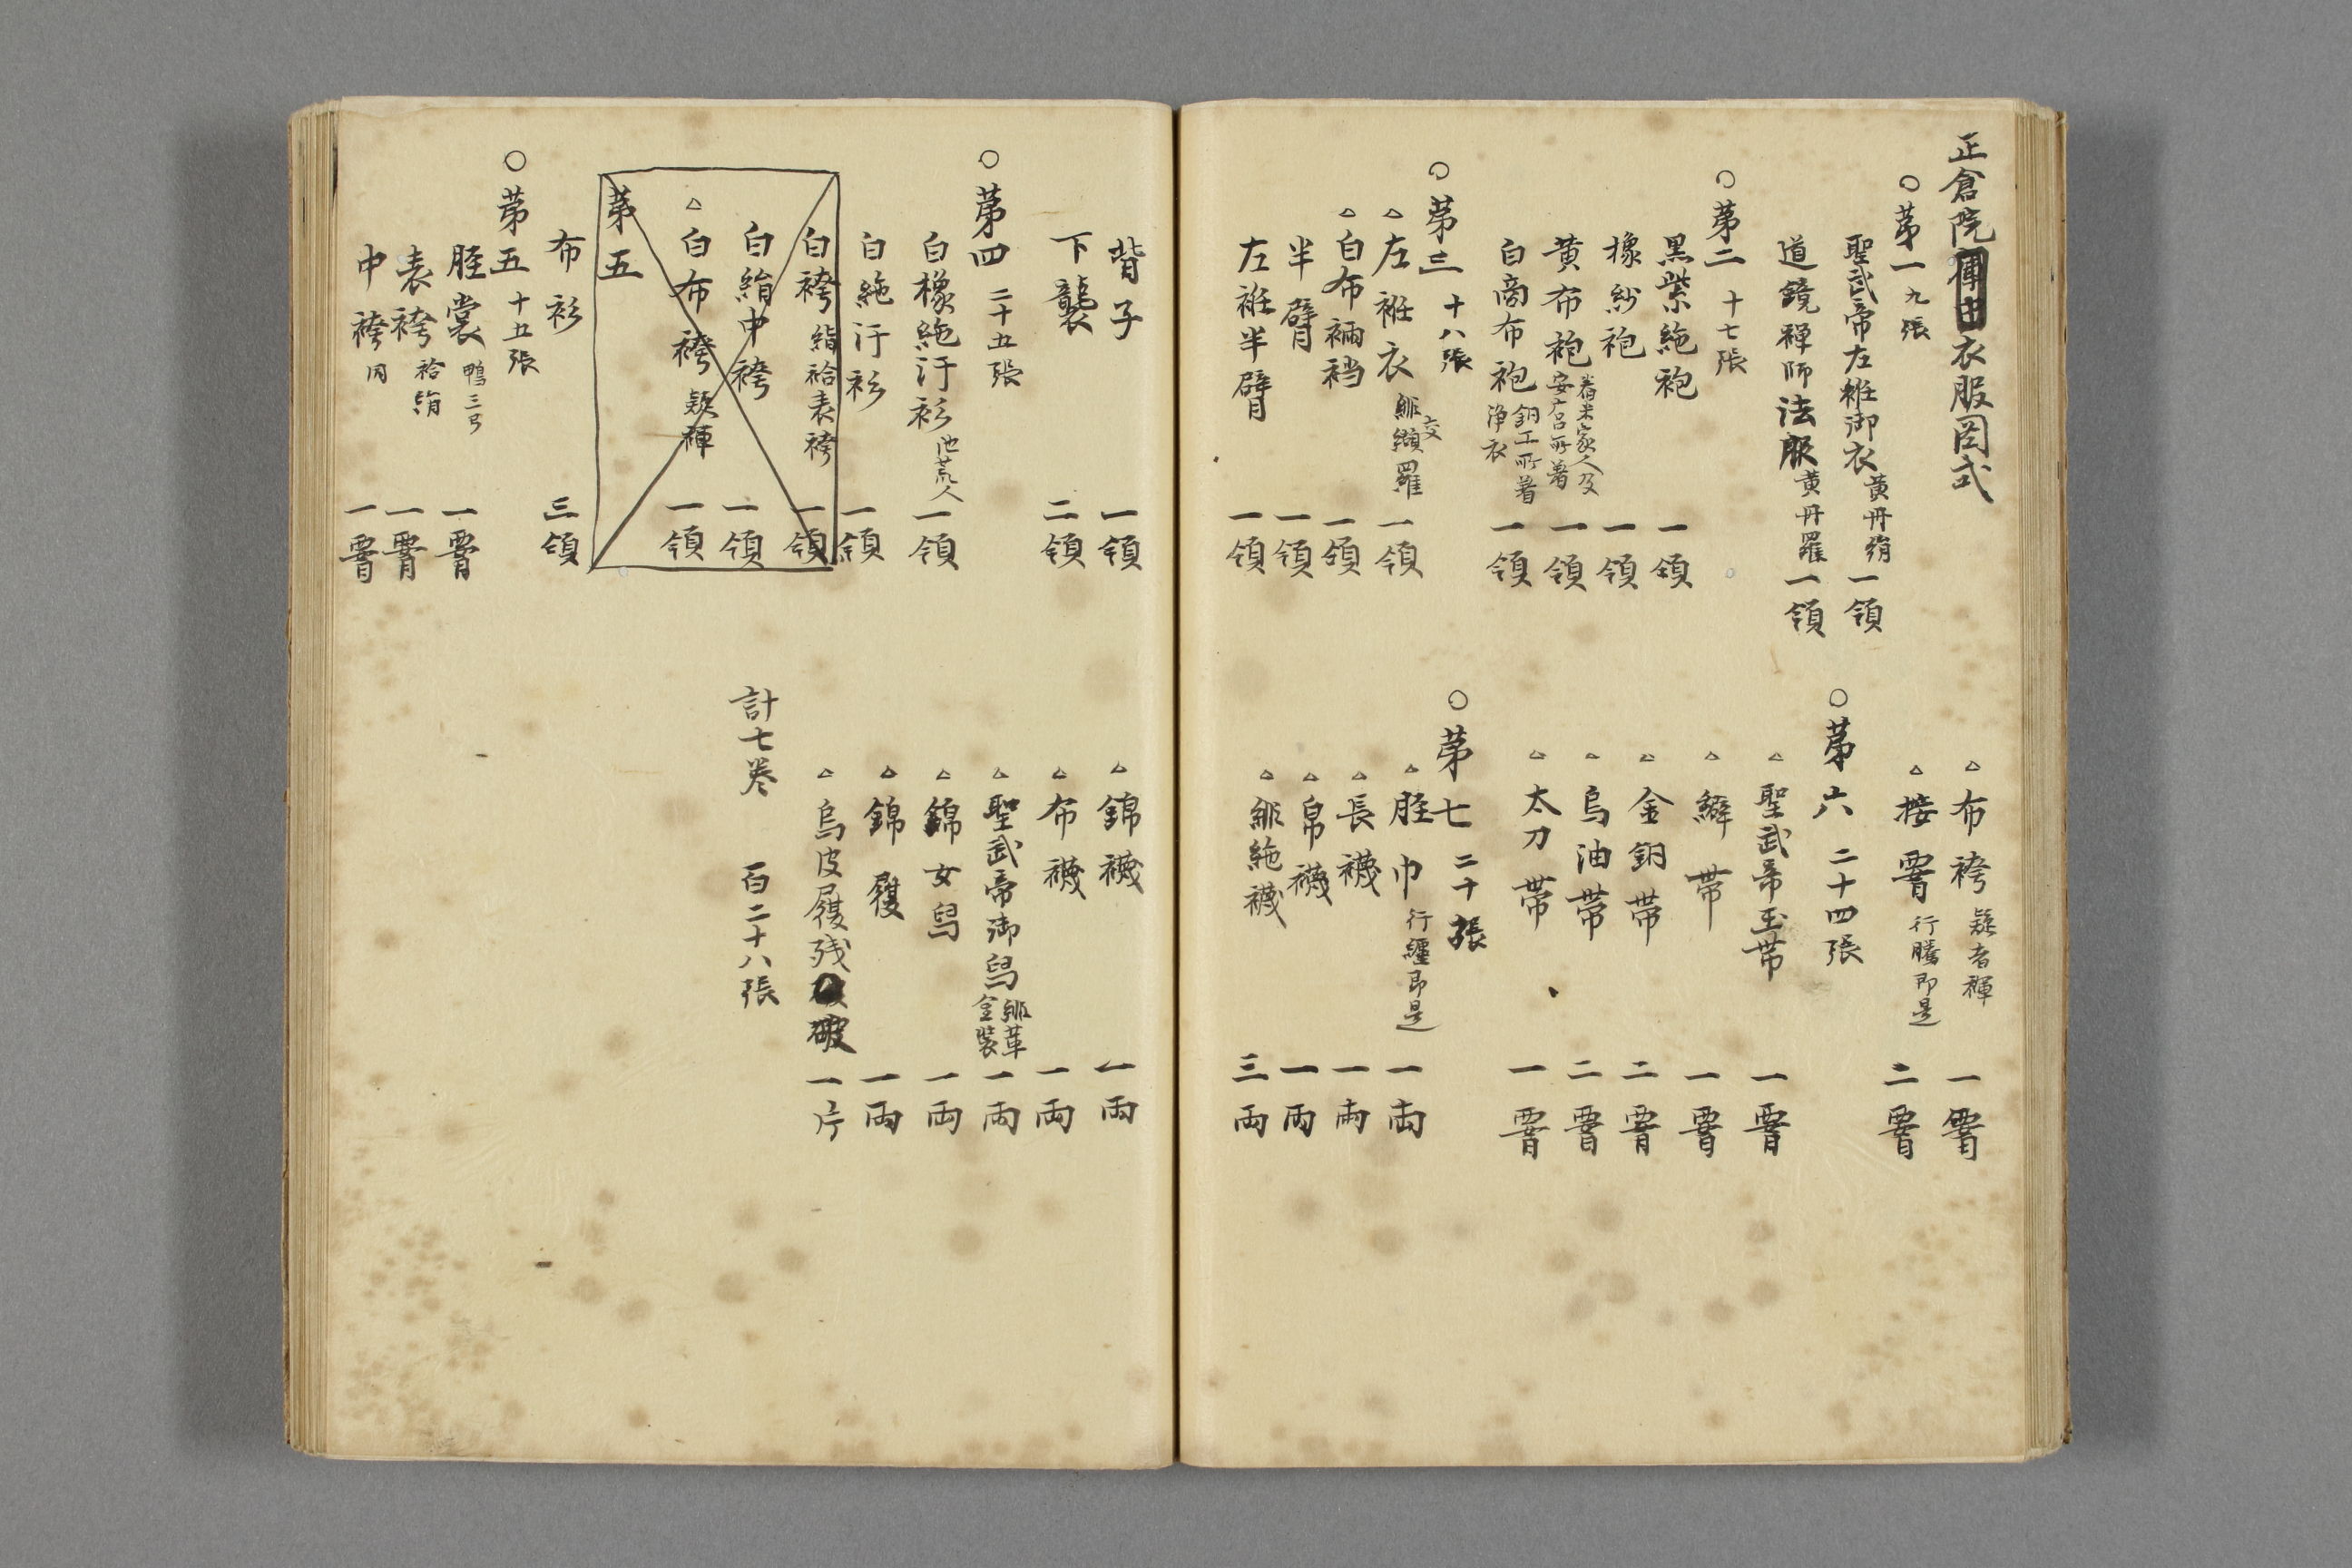 正倉院衣服図式
○第一 九張
聖武帝左袵御衣 黄丹絹 一領
道鏡禅師法服 黄丹羅 一領
○第二 十七張
黒紫絁袍 一領
橡紗袍 一領
黄布袍 舂米家人及安宿所著 一領
白商布袍 銅工所著浄衣 一領
○第三 十八張
△左袵衣 緋交纈羅 一領
△白布裲襠 一領
半臂 一領
左袵半臂 一領
△布袴 疑者褌 一署
△接署 行騰即是 二署
○第六 二十四張
△聖武帝玉帯 一署
△鞶帯 一署
△金銅帯 二署
△烏油帯 二署
△太刀帯 一署
○第七 二十張
△脛巾 行纒即是 一両
△長襪 一両
△帛襪 一両
△緋絁襪 三両
背子 一領
下襲 二領
○第四 二十五張
白橡絁汗衫 一領
白絁汗衫 一領
白袴 絹袷表袴 一領
白絹中袴 一領
△白布袴 疑褌 一領
第五
布衫 三領
○第五 十五張
脛裳 一署
表袴 袷絹 一署
中袴 同 一署
△錦襪 一両
△布襪 一両
△聖武帝御舃 緋革金装 一両
△錦女舃 一両
△錦履 一両
△烏皮履残破 一片
計七巻 百二十八張